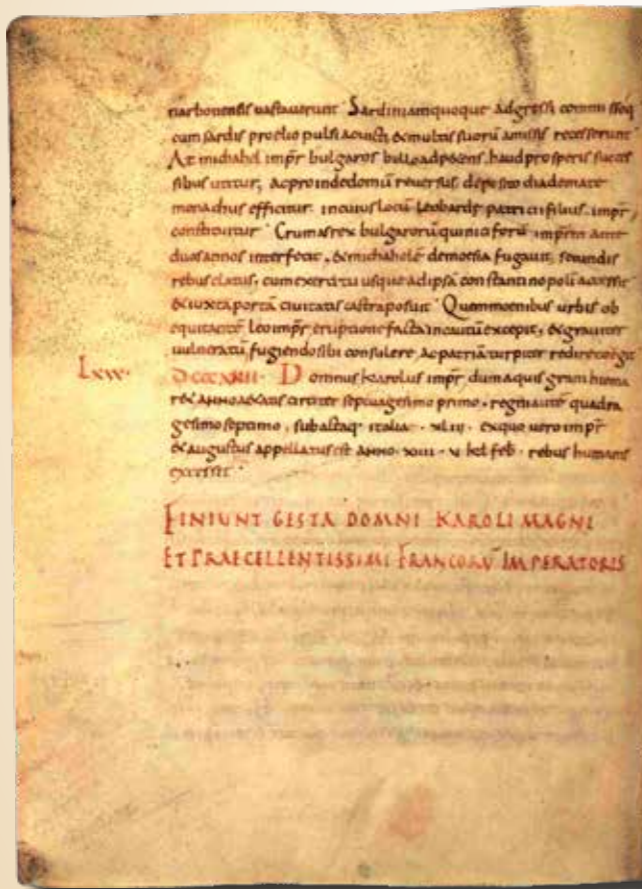 narbonensis uastauerunt Sardiniam quoque adgressi commisso q;
cum sardis proelio pulsi ac uicti & multis suorū amissis recesserunt
At michahel impr bulgaros bello adpetens, haud prosperis succes
sibus utitur; ac proinde domū reuersus, deposito diademate
monachus efficitur. in cuius locū leo bardę patricii filius. impr,
constituitur Crumas rex bulgarorū qui niciforū impr̄m ante
duos annos interfecit, & michahelē de moesia fugauit, secundis
rebus elatus, cum exercitu usque ad ipsā constantinopoli accessit
& iuxta portā ciuitatis castra posuit Quem moenibus urbis ob
equitantē leo impr eruptione facta incautū excepit, & grauiter
uulneratū, fugiendo sibi consulere ac patriā turpiter redire coegit
Lxx. DCCCXIIII. Domnus karolus impr, dum aquis grani hiema
r& anno aetatis circiter septuagesimo primo, regni autē quadra
gesimo septimo, subactaeq. italiae . xliii . ex quo uero impr
& augustus appellatus est anno . xiiii . v kal feb . rebus humanis
excessit
FINIUNT GESTA DOMNI KAROLI MAGNI
ET PRAECELLENTISSIMI FRANCORV̄ IMPERATORIS